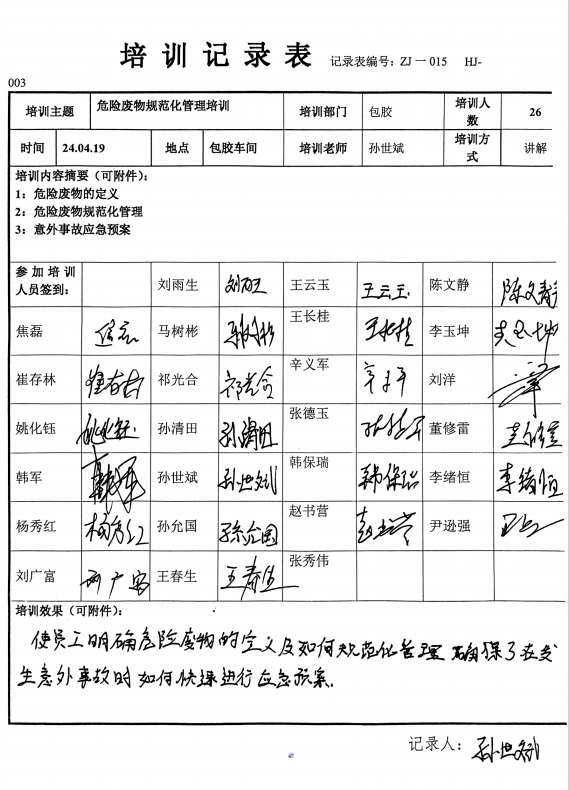 培训记录表 记录表编号：ZJ－015 HJ-
003
培训主题 危险废物规范化管理培训 培训部门 包胶 培训人数 26
时间 24.04.19 地点 包胶车间 培训老师 孙世斌 培训方式 讲解
培训内容摘要（可附件）：
1：危险废物的定义
2：危险废物规范化管理
3：意外事故应急预案
参加培训人员签到： 刘雨生 刘雨生 王云玉 王云玉 陈文静 陈文静
焦磊 焦磊 马树彬 王长桂 王长桂 李玉坤
崔存林 崔存林 祁光合 祁光合 辛义军 辛义军 刘洋
姚化钰 姚化钰 孙清田 孙清田 张德玉 董修雷 董修雷
韩军 韩军 孙世斌 孙世斌 韩保瑞 韩保瑞 李绪恒 李绪恒
杨秀红 杨秀红 孙允国 孙允国 赵书营 赵书营 尹逊强
刘广富 刘广富 王春生 王春生 张秀伟
培训效果（可附件）：
使员工明确危险废物的定义及如何规范化管理 确保了在发
生意外事故时如何快速进行应急预案.
记录人： 孙世斌